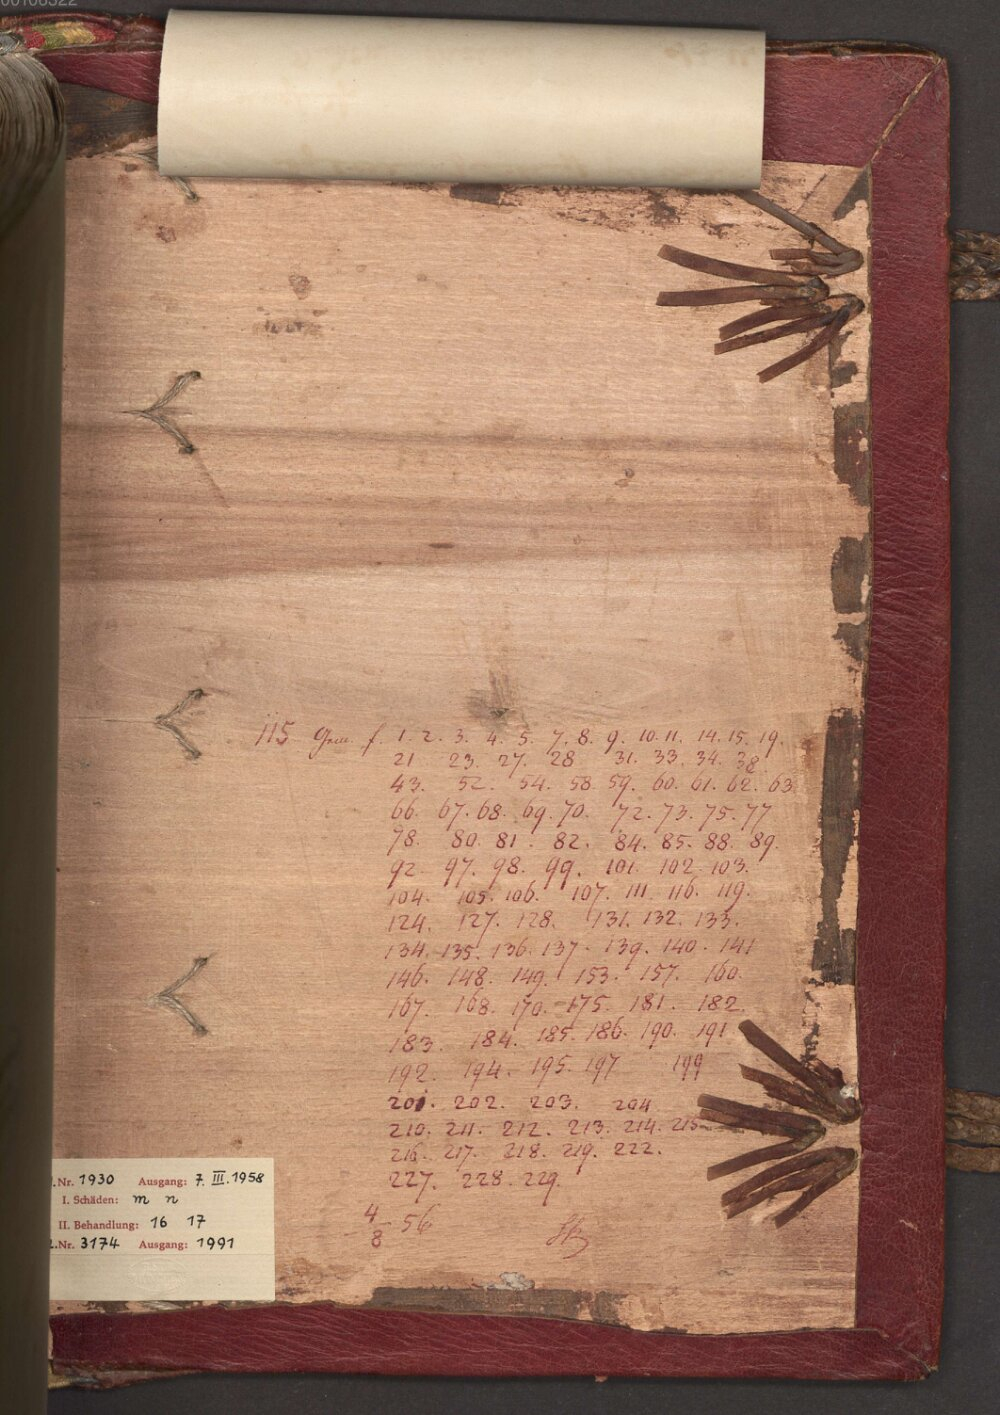 115 Gem f. 1. 2. 3. 4. 5. 7. 8. 9. 10. 11. 14. 15. 19.
21 23. 27. 28 31. 33. 34. 38
43. 52. 54. 58. 59. 60. 61. 62. 63
66. 67. 68. 69. 70. 72. 73. 75. 77
78. 80. 81. 82. 84. 85. 88. 89.
92. 97. 98. 99. 101. 102. 103.
104. 105. 106. 107. 111. 116. 119.
124. 127. 128. 131. 132. 133.
134. 135. 136. 137. 139. 140. 141
146. 148. 149. 153. 157. 160.
167. 168. 170. 175. 181. 182.
183. 184. 185. 186. 190. 191
192. 194. 195. 197 199
201. 202. 203. 204
210. 211. 212. 213. 214. 215
216. 217. 218. 219. 222.
227. 228. 229.
4/8 56
.Nr. 1930 Ausgang: 7. III. 1958
I. Schäden: m n
II. Behandlung: 16 17
.Nr. 3174 Ausgang: 1991